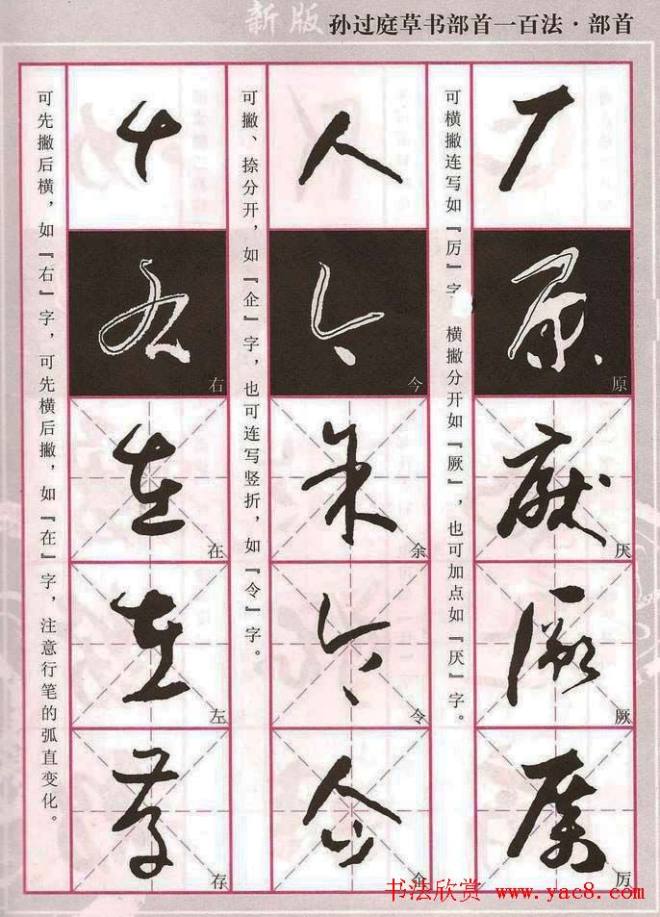 新版 孙过庭草书部首一百法·部首
可横撇连写如『厉』字 横撇分开如『厥』，也可加点如『厌』字。
厂
原
厌
厥
厉
可撇、捺分开，如『企』字，也可连写竖折，如『令』字。
人
今
余
令
企
可先撇后横，如『右』字，可先横后撇，如『在』字，注意行笔的弧直变化。
𠂇
右
在
左
存
书法欣赏 www.yac8.com